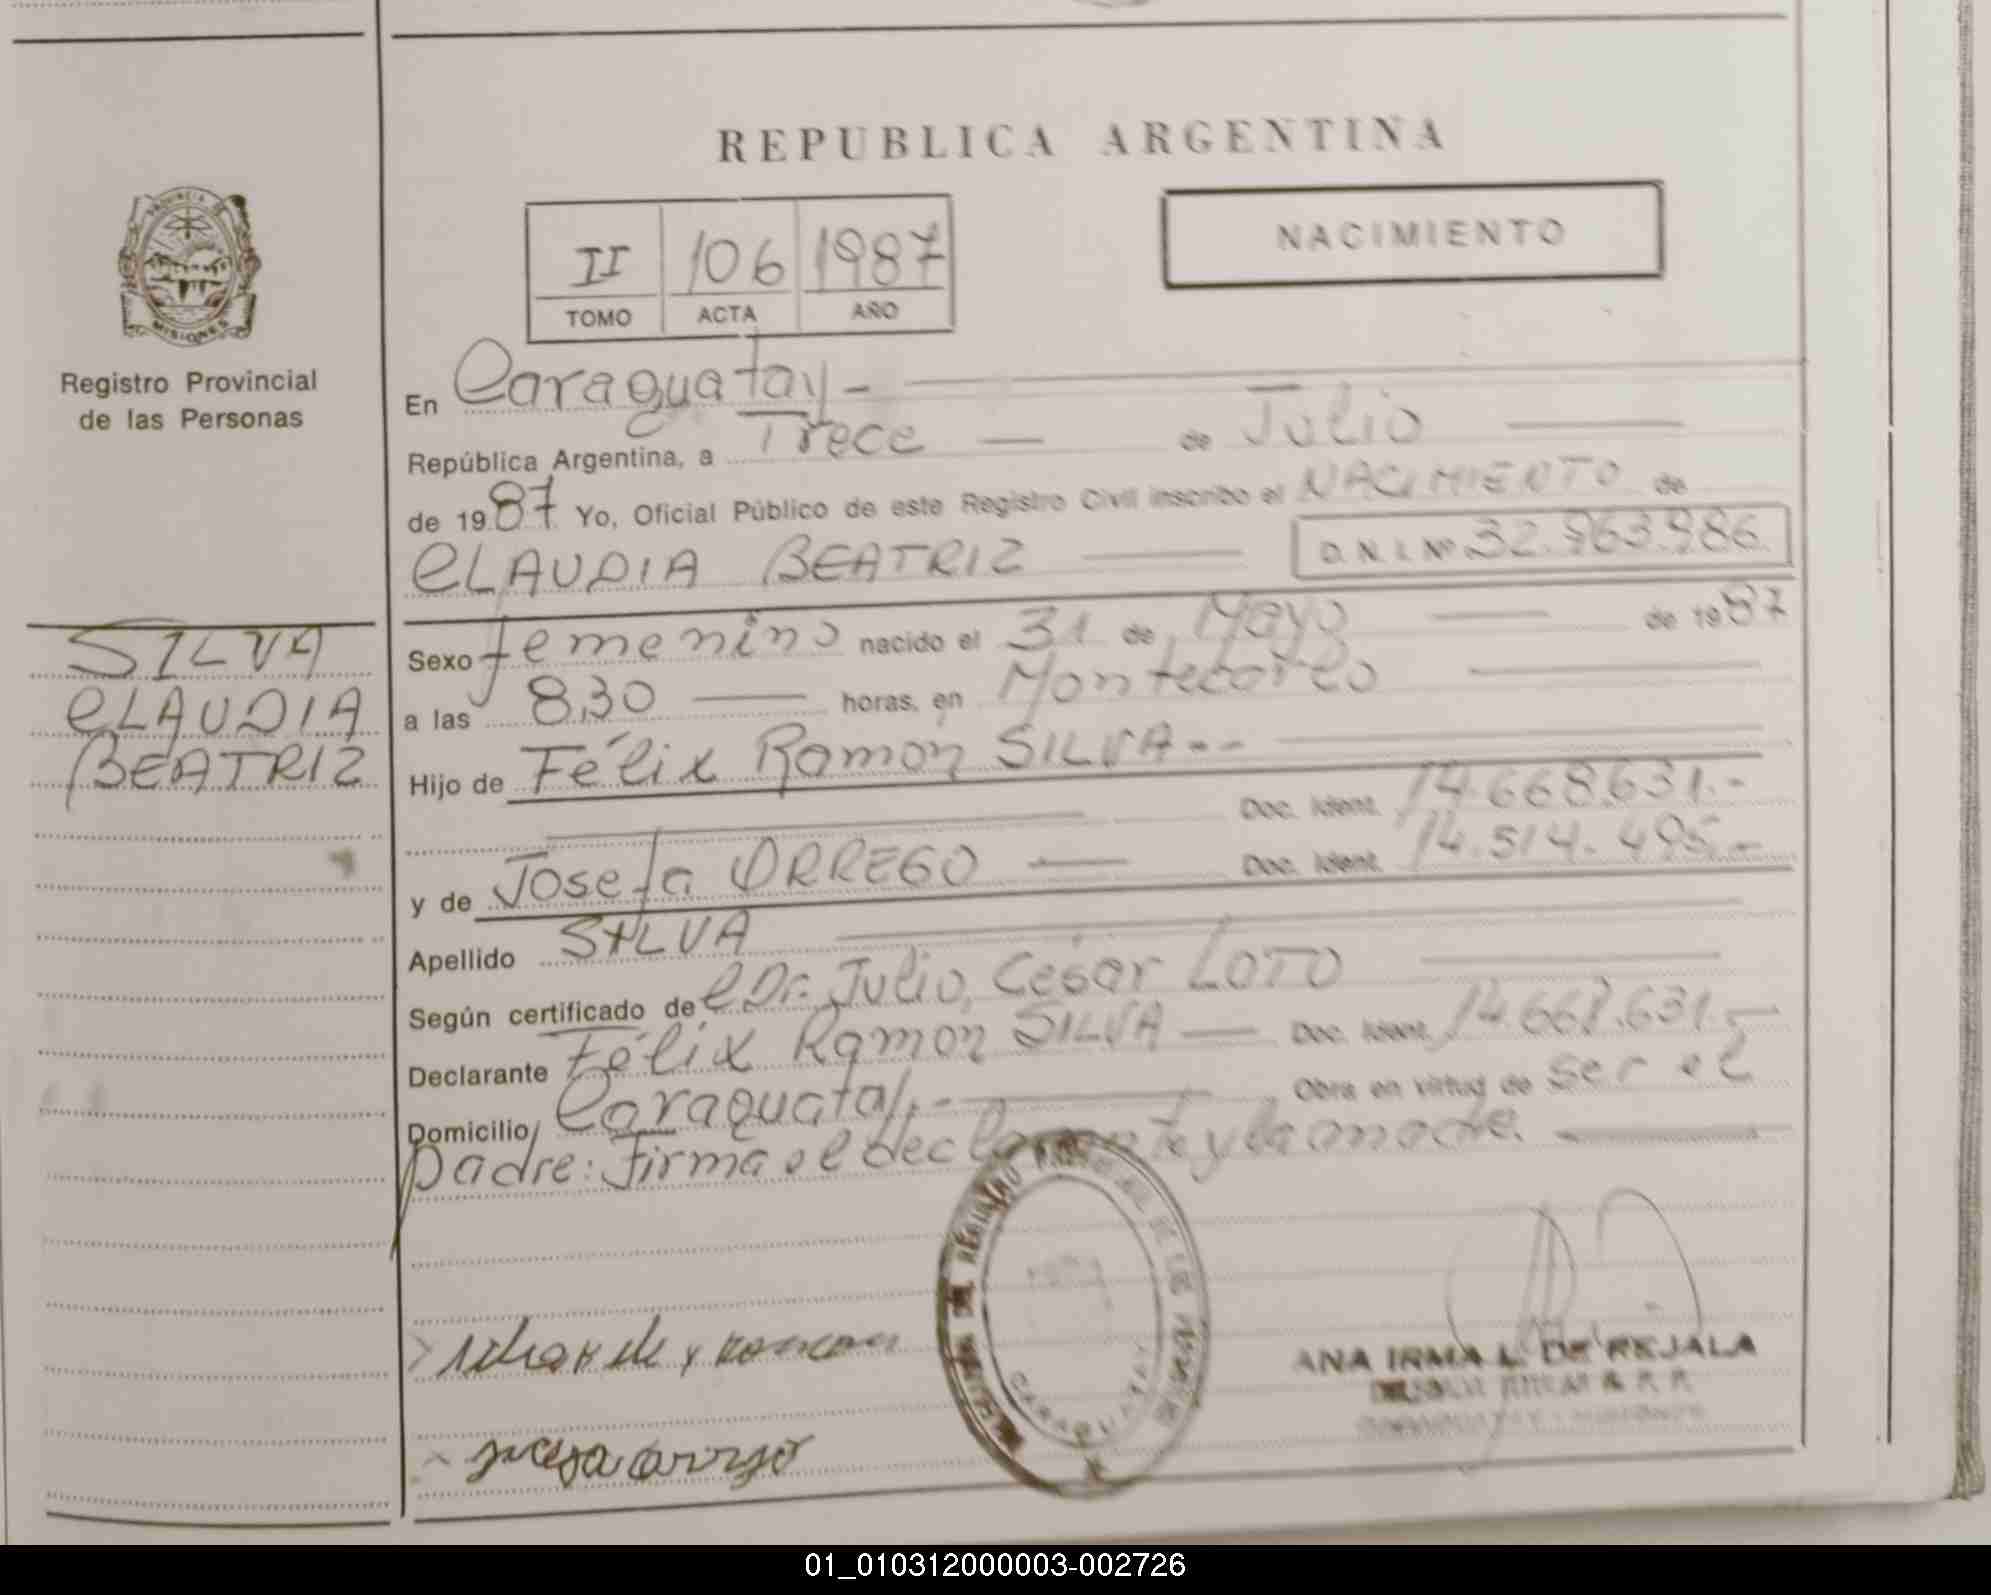 REPUBLICA ARGENTINA
PROVINCIA DE
MISIONES
Registro Provincial
de las Personas
SILVA
CLAUDIA
BEATRIZ
II 106 1987
TOMO ACTA AÑO
NACIMIENTO
En Caraguatay -
República Argentina, a Trece — de Julio
de 1987 Yo, Oficial Público de este Registro Civil inscribo el NACIMIENTO de
CLAUDIA BEATRIZ D.N.I. Nº 32.963.986
Sexo femenino nacido el 31 de Mayo de 1987
a las 8,30 horas, en Montecarlo
Hijo de Félix Ramon SILVA --
Doc. Ident. 14.668.631.-
y de Josefa ORREGO — Doc. Ident. 14.514.495.-
Apellido SILVA
Según certificado del Dr. Julio, César LOTO
Declarante Félix Ramon SILVA — Doc. Ident. 14.668.631.-
Domicilio Caraguatay.- Obra en virtud de ser el
padre: firma el declarante y la madre.
CARAGUATAY
ANA IRMA L. DE REJALA
01_010312000003-002726